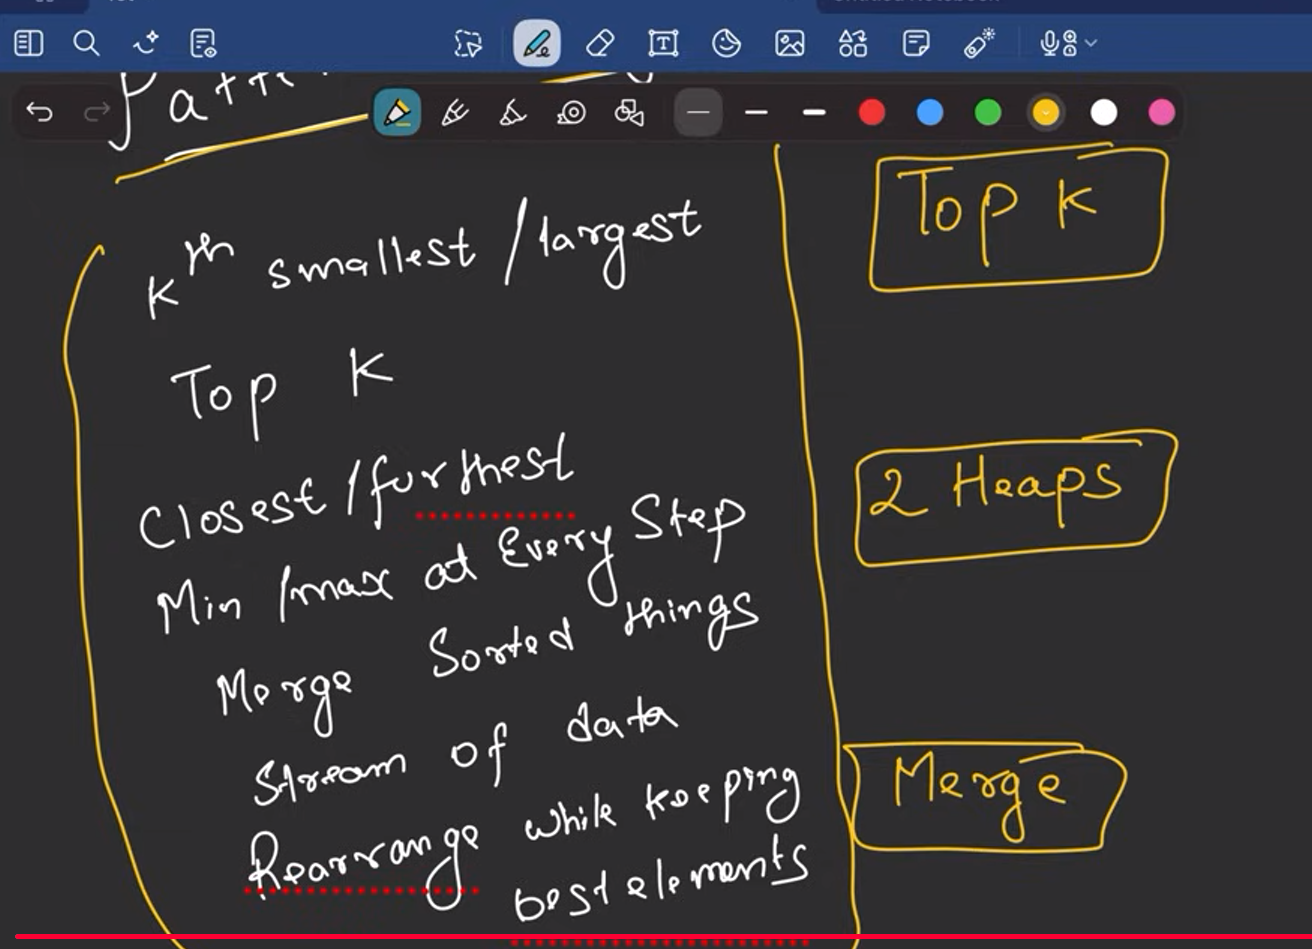 Kth smallest / largest
Top K
Closest / furthest
Min / max at Every Step
Merge Sorted things
Stream of data
Rearrange while keeping
best elements
Top K
2 Heaps
Merge